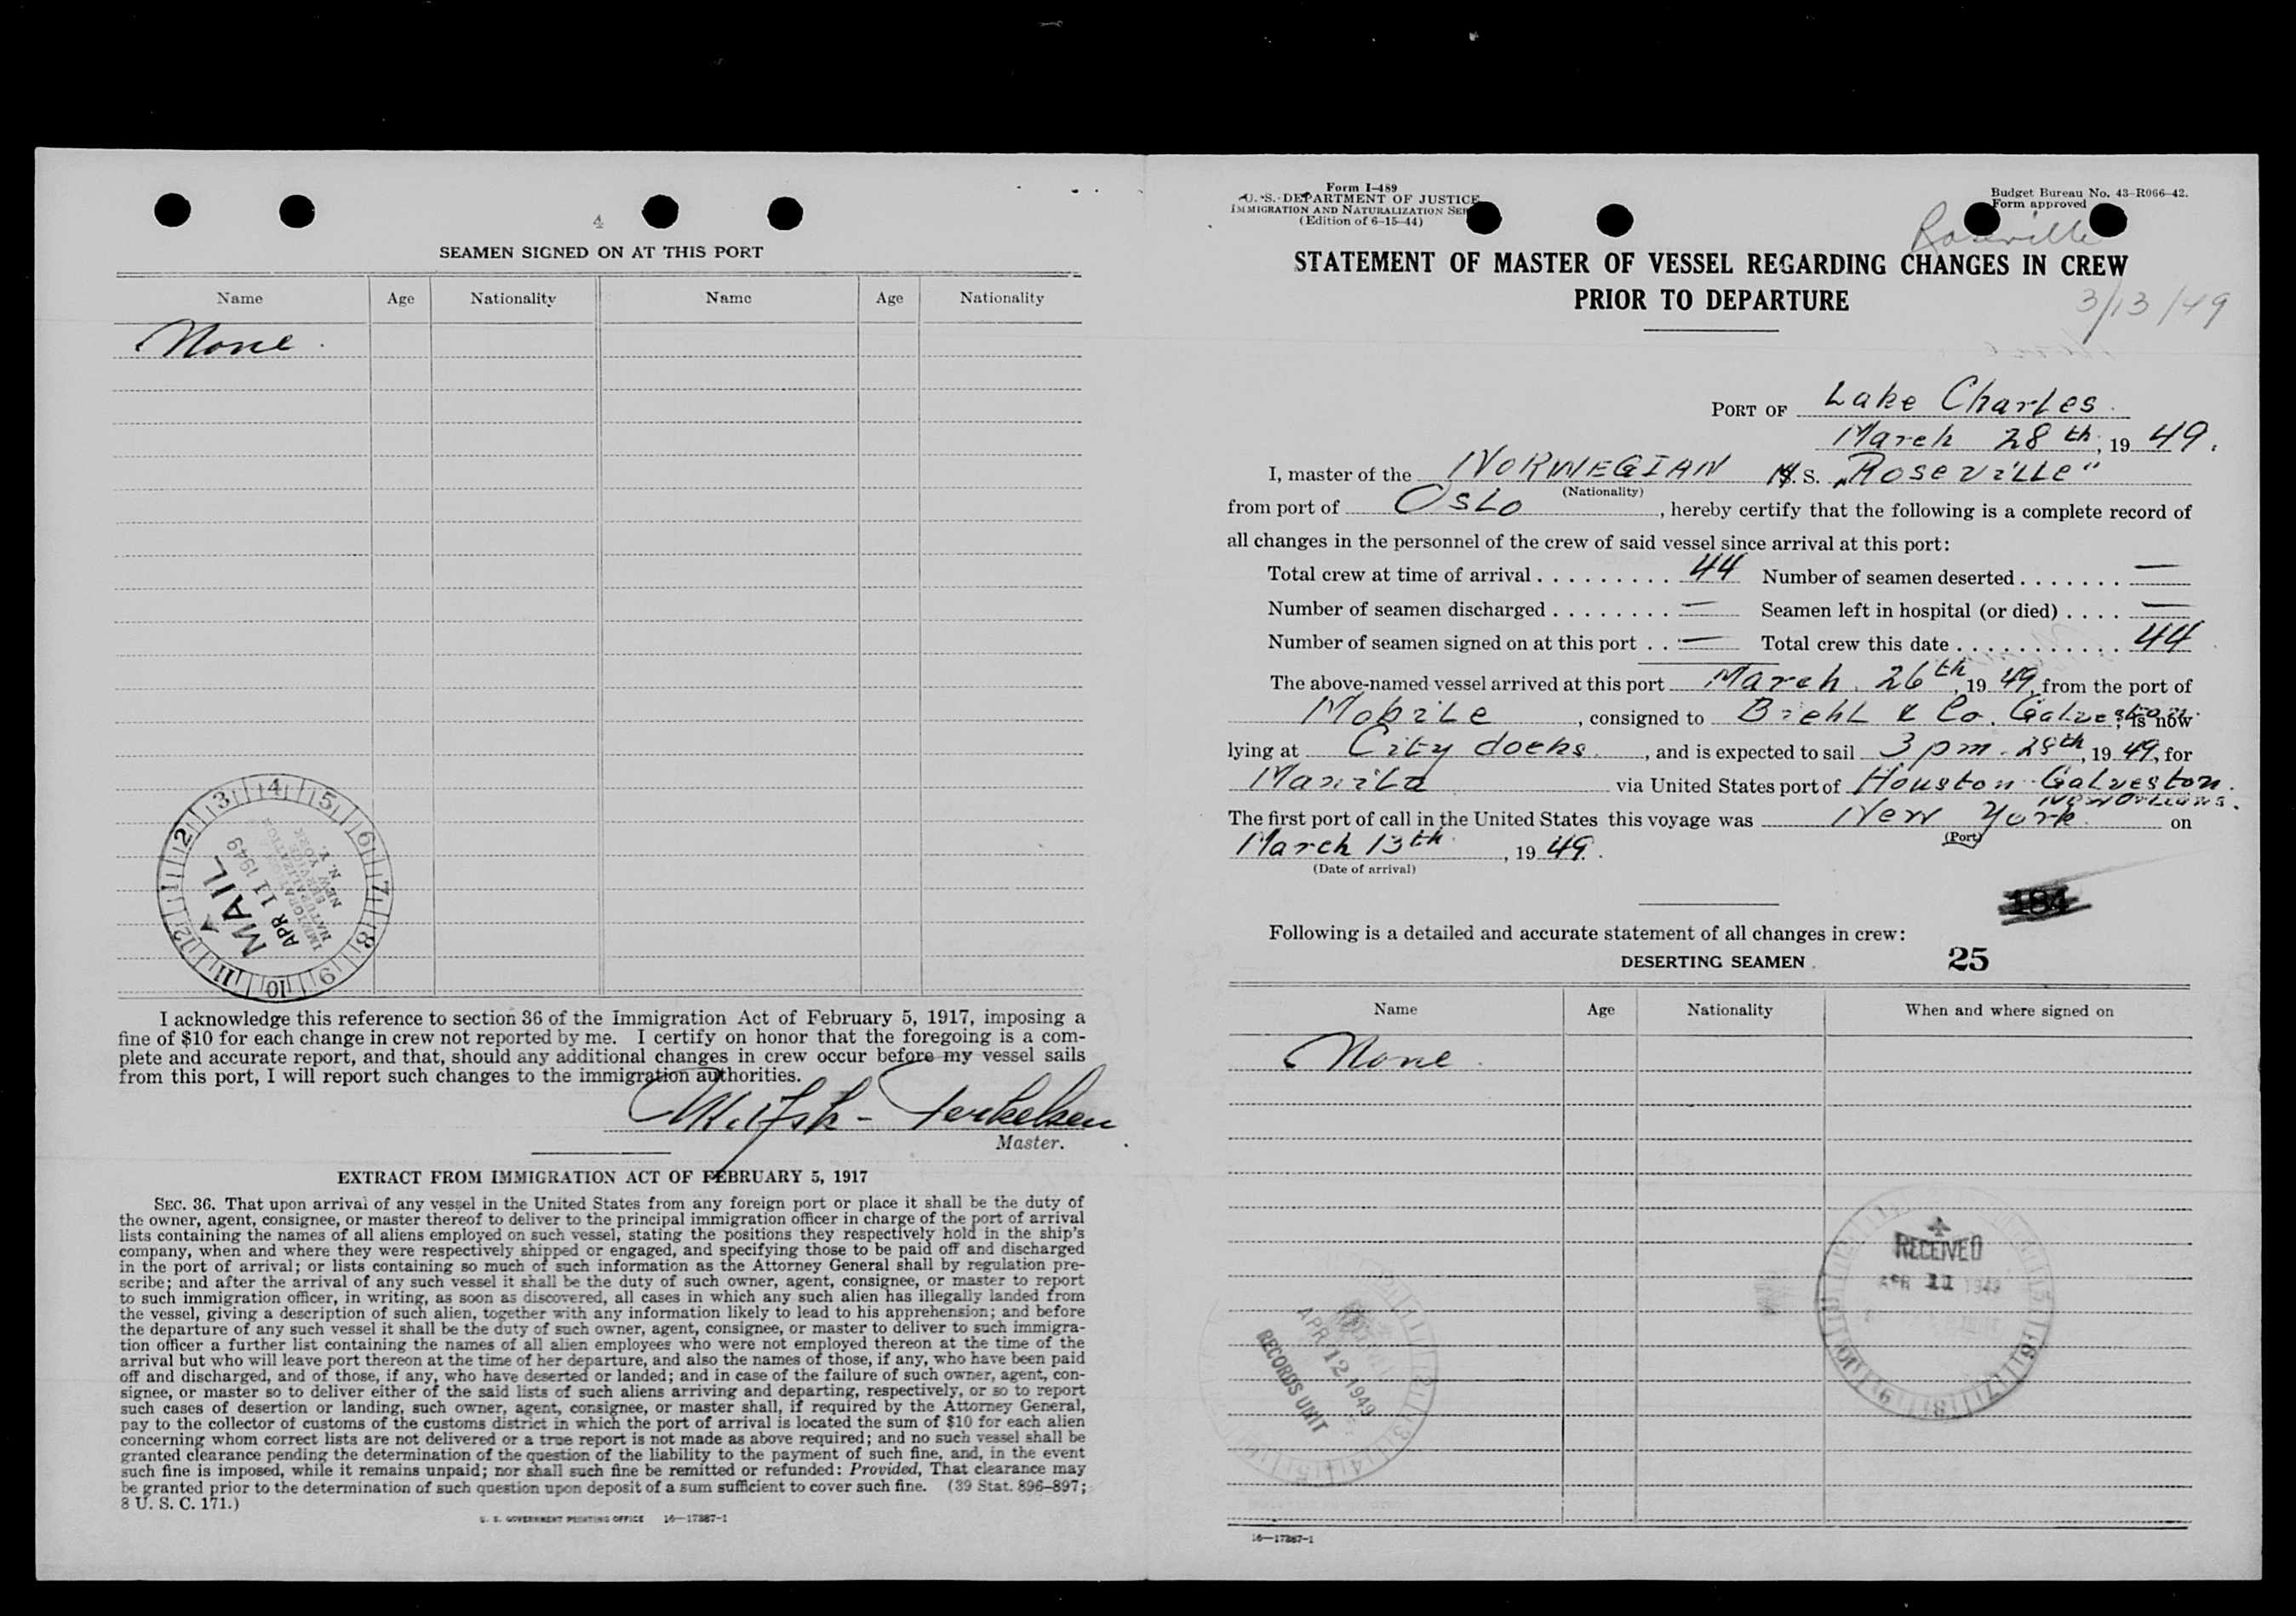 4
SEAMEN SIGNED ON AT THIS PORT
Name Age Nationality Name Age Nationality
None
1 2 3 4 5 6 7 8 9 10 11 12
MAIL
APR 11 1949
IMMIGRATION
NATURALIZATION
SERVICE
NEW YORK
N. Y.
I acknowledge this reference to section 36 of the Immigration Act of February 5, 1917, imposing a
fine of $10 for each change in crew not reported by me. I certify on honor that the foregoing is a com-
plete and accurate report, and that, should any additional changes in crew occur before my vessel sails
from this port, I will report such changes to the immigration authorities.
Terkelsen
Master.
EXTRACT FROM IMMIGRATION ACT OF FEBRUARY 5, 1917
SEC. 36. That upon arrival of any vessel in the United States from any foreign port or place it shall be the duty of
the owner, agent, consignee, or master thereof to deliver to the principal immigration officer in charge of the port of arrival
lists containing the names of all aliens employed on such vessel, stating the positions they respectively hold in the ship's
company, when and where they were respectively shipped or engaged, and specifying those to be paid off and discharged
in the port of arrival; or lists containing so much of such information as the Attorney General shall by regulation pre-
scribe; and after the arrival of any such vessel it shall be the duty of such owner, agent, consignee, or master to report
to such immigration officer, in writing, as soon as discovered, all cases in which any such alien has illegally landed from
the vessel, giving a description of such alien, together with any information likely to lead to his apprehension; and before
the departure of any such vessel it shall be the duty of such owner, agent, consignee, or master to deliver to such immigra-
tion officer a further list containing the names of all alien employees who were not employed thereon at the time of the
arrival but who will leave port thereon at the time of her departure, and also the names of those, if any, who have been paid
off and discharged, and of those, if any, who have deserted or landed; and in case of the failure of such owner, agent, con-
signee, or master so to deliver either of the said lists of such aliens arriving and departing, respectively, or so to report
such cases of desertion or landing, such owner, agent, consignee, or master shall, if required by the Attorney General,
pay to the collector of customs of the customs district in which the port of arrival is located the sum of $10 for each alien
concerning whom correct lists are not delivered or a true report is not made as above required; and no such vessel shall be
granted clearance pending the determination of the question of the liability to the payment of such fine, and, in the event
such fine is imposed, while it remains unpaid; nor shall such fine be remitted or refunded: Provided, That clearance may
be granted prior to the determination of such question upon deposit of a sum sufficient to cover such fine. (39 Stat. 896–897;
8 U. S. C. 171.)
U. S. GOVERNMENT PRINTING OFFICE 16—17387-1
Form I-489
U. S. DEPARTMENT OF JUSTICE
IMMIGRATION AND NATURALIZATION SER
(Edition of 6-15-44)
Budget Bureau No. 43-R066-42.
Form approved
Roseville
STATEMENT OF MASTER OF VESSEL REGARDING CHANGES IN CREW
PRIOR TO DEPARTURE
3/13/49
PORT OF Lake Charles.
March 28th, 1949.
I, master of the NORWEGIAN M. S. „Roseville"
(Nationality)
from port of Oslo, hereby certify that the following is a complete record of
all changes in the personnel of the crew of said vessel since arrival at this port:
Total crew at time of arrival . . . . . . . . . 44 Number of seamen deserted . . . . . . . —
Number of seamen discharged . . . . . . . . — Seamen left in hospital (or died) . . . . —
Number of seamen signed on at this port . . — Total crew this date . . . . . . . . . . . 44
The above-named vessel arrived at this port March 26th, 1949, from the port of
Mobile, consigned to Biehl & Co. Galveston, is now
lying at City docks., and is expected to sail 3 pm. 28th, 1949, for
Manila via United States port of Houston Galveston.
New Orleans.
The first port of call in the United States this voyage was New York on
(Port)
March 13th, 1949.
(Date of arrival)
184
Following is a detailed and accurate statement of all changes in crew:
DESERTING SEAMEN
25
Name Age Nationality When and where signed on
None
RECEIVED
APR 11 1949
APR 12 1949
RECORDS UNIT
16—17387-1